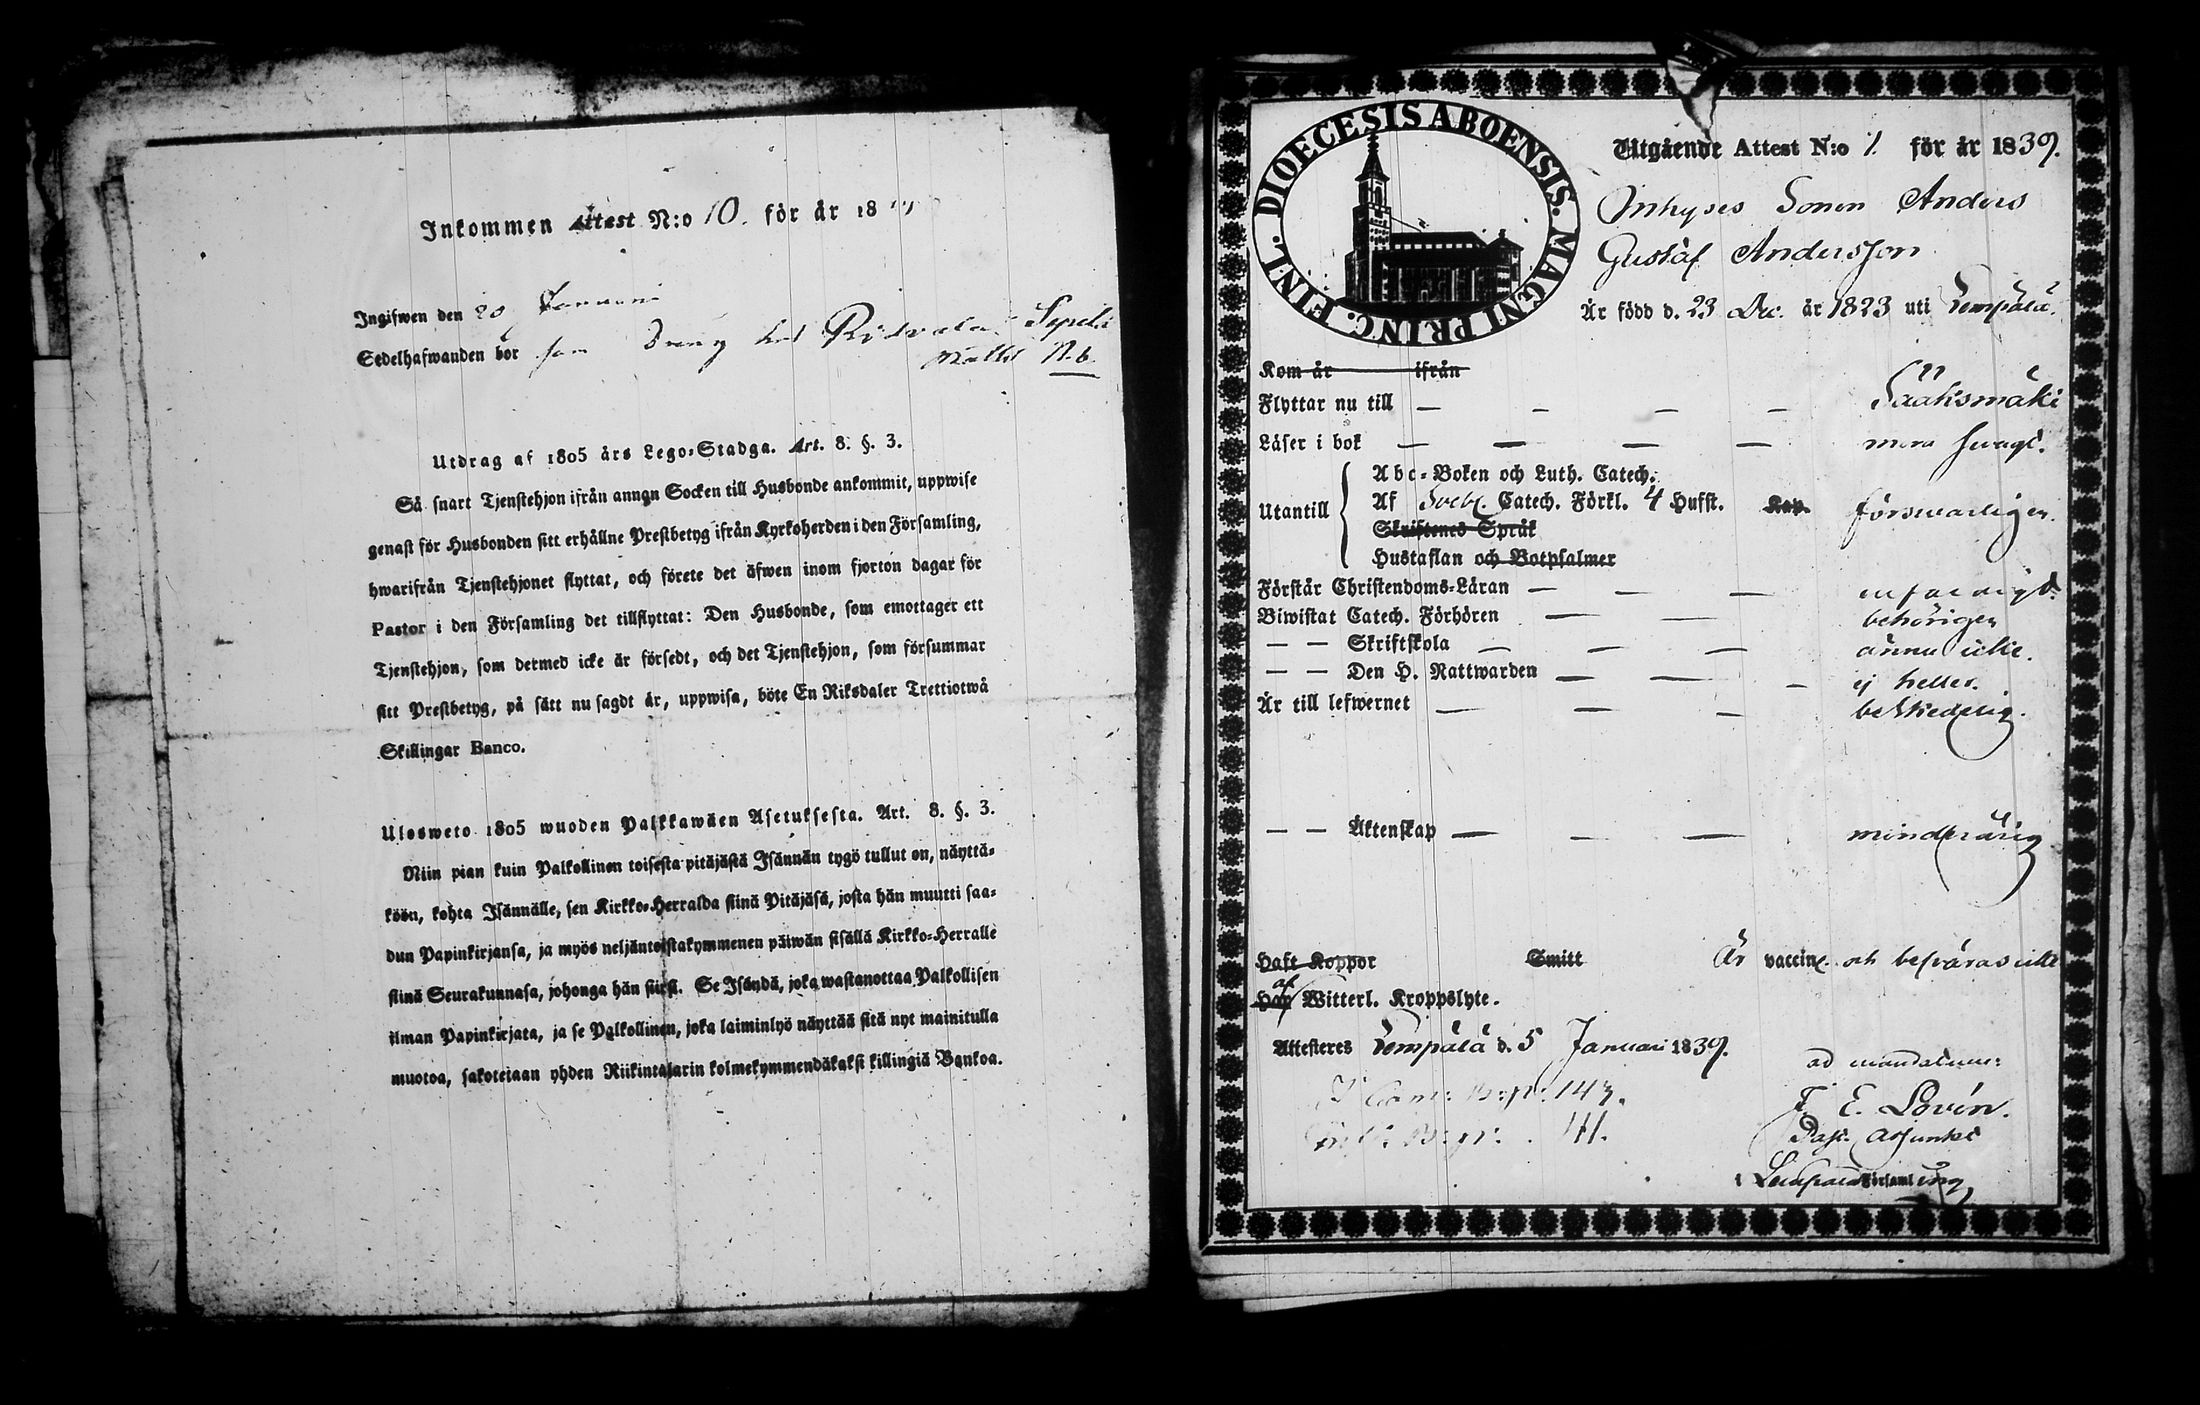 Inkommen Attest N:o 10. för år 18
Ingifwen den 20 Januari
Sedelhafwanden bor som Dreng hos Ridvala Seppälä
Matts N. 6.
Utdrag af 1805 års Lego-Stadga. Art. 8. §. 3.
Så snart Tjenstehjon ifrån annan Socken till Husbonde ankommit, uppwise
genast för Husbonden sitt erhållne Prestbetyg ifrån Kyrkoherden i den Församling,
hwarifrån Tjenstehjonet flyttat, och förete det äfwen inom fjorton dagar för
Pastor i den Församling det tillflyttat: Den Husbonde, som emottager ett
Tjenstehjon, som dermed icke är försedt, och det Tjenstehjon, som försummar
sitt Prestbetyg, på sätt nu sagdt är, uppwisa, böte En Riksdaler Trettiotwå
Skillingar Banco.
Ulosweto 1805 wuoden Palkkawäen Asetuksesta. Art. 8. §. 3.
Niin pian kuin Palkollinen toisesta pitäjästä Isännän tygö tullut on, näyttä-
köön, kohta Isännälle, sen Kirkko-Herralda siinä Pitäjäsä, josta hän muutti saa-
dun Papinkirjansa, ja myös neljäntoistakymmenen päiwän sisällä Kirkko-Herralle
siinä Seurakunnasa, johonga hän siirsi. Se Isändä, joka wastanottaa Palkollisen
ilman Papinkirjata, ja se Palkollinen, joka laiminlyö näyttää sitä nyt mainitulla
muotoa, sakotetaan yhden Riikintalarin kolmekymmendäkaksi killingiä Bankoa.
DIOECESIS ABOENSIS. MAGNI PRINC. FINL.
Utgående Attest N:o 1. för år 1839.
Inhyses Sonen Anders
Gustaf Andersson
Är född d. 23 Dec. år 1823 uti Lempälä.
Kom år ifrån
Flyttar nu till — — — — Sääksmäki
Läser i bok — — — — mera swagt.
Utantill
Abc-Boken och Luth. Catech.
Af Svebel. Catech. Förkl. 4 Hufst. Kap. försvarligen.
Skriftenes Språk
Hustaflan och Botpsalmer
Förstår Christendoms-Läran — — — enfaldigt.
Biwistat Catech. Förhören — — behörigen
— — Skriftskola — — — ännu icke.
— — Den H. Nattwarden — — — ej heller.
Är till lefwernet — — — beskedelig.
— — Äktenskap — — — minderårig
Haft Koppor Smitt Är vaccin. och besväras icke
Har af Witterl. Kroppslyte.
Attesteres Lempälä d. 5 Januari 1839.
ad mandatum:
Comm: B: p: 143.
B: p: 141.
F. E. Lovén.
Past. Adjunkt
i Lempälä Församling